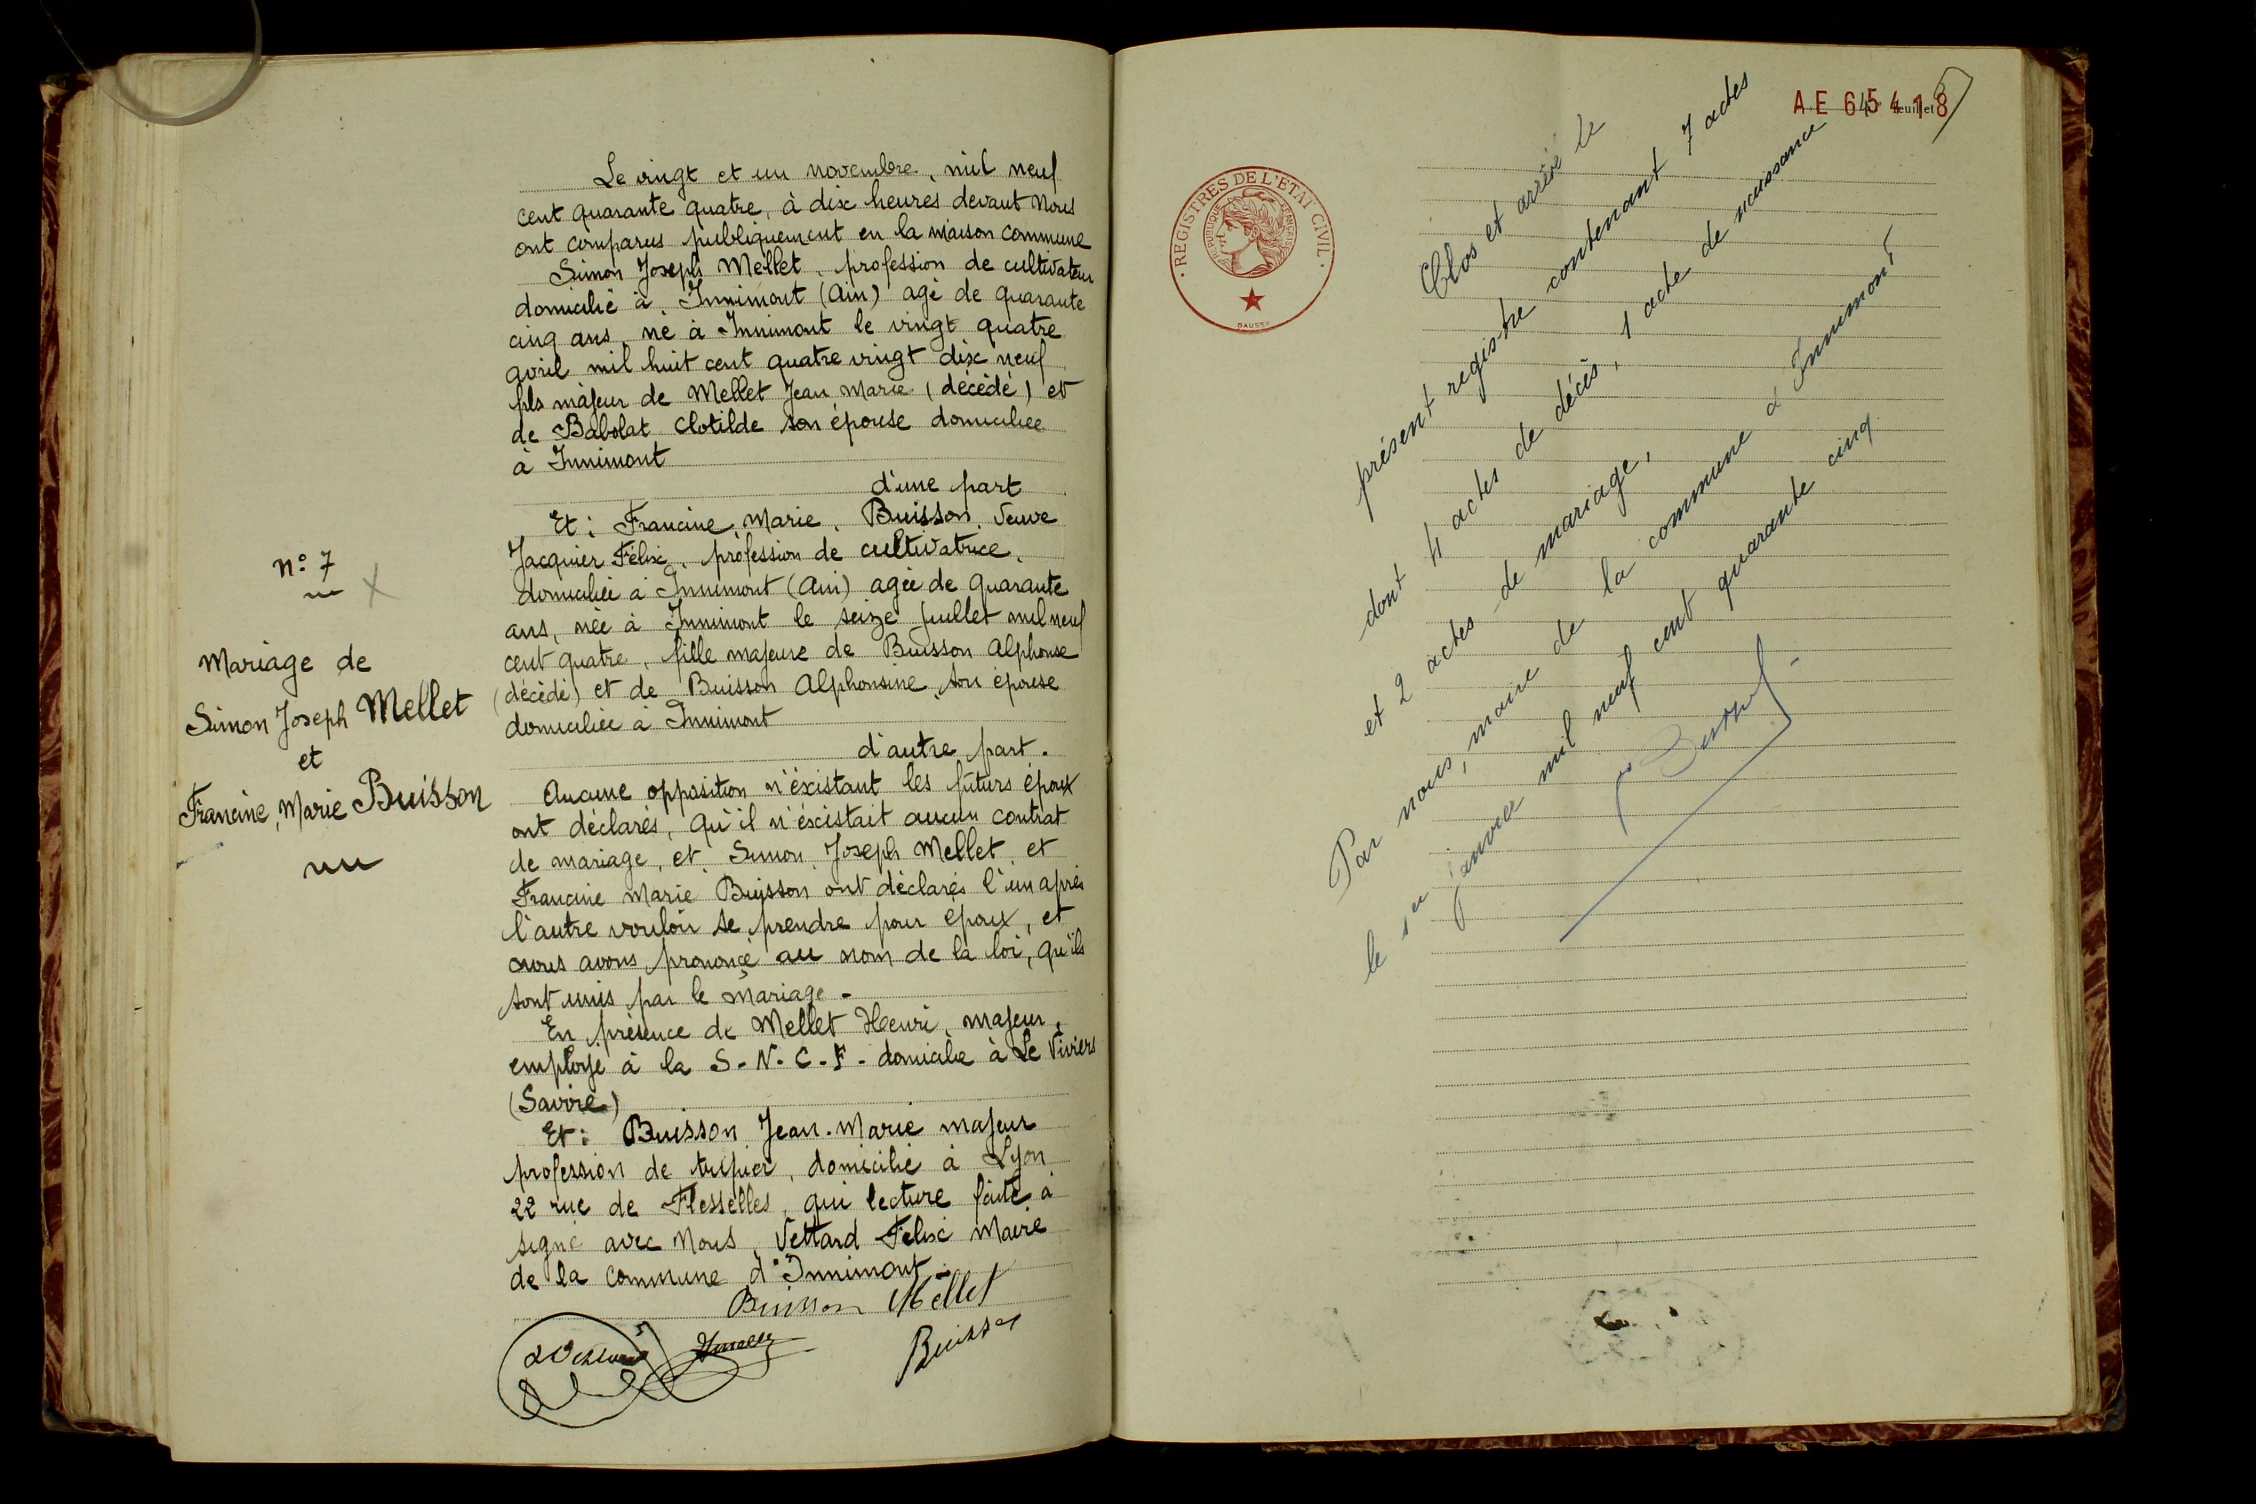 Nº 7
Mariage de
Simon Joseph Mellet
et
Francine, Marie Buisson
Le vingt et un novembre, mil neuf
cent quarante quatre, à dix heures devant Nous
ont comparus publiquement en la maison commune
Simon Joseph Mellet, profession de cultivateur
domicilié à Innimont (Ain) agé de quarante
cinq ans, né à Innimont le vingt quatre
avril mil huit cent quatre vingt dix neuf
fils majeur de Mellet Jean Marie (décédé) et
de Babolat Clotilde son épouse domiciliée
à Innimont
d'une part
Et : Francine, Marie, Buisson, Veuve
Jacquier Félix, profession de cultivatrice,
domiciliée à Innimont (Ain) agée de quarante
ans, née à Innimont le seize juillet mil neuf
cent quatre, fille majeure de Buisson Alphonse
(décédé) et de Buisson Alphonsine, son épouse
domiciliée à Innimont
d'autre part.
Aucune opposition n'éxistant les futurs époux
ont déclarés, qu'il n'éxistait aucun contrat
de mariage, et Simon, Joseph Mellet, et
Francine Marie Buisson ont déclarés l'un après
l'autre vouloir se prendre pour époux, et
nous avons prononcé au nom de la loi, qu'ils
sont unis par le mariage -
En présence de Mellet Henri, majeur,
employé à la S.N.C.F. domicilié à Le Viviers
(Savoie)
Et : Buisson Jean-Marie majeur
profession de tripier, domicilié à Lyon
22 rue de Flesselles, qui lecture faite a
signé avec Nous, Vettard Félix Maire
de la commune d'Innimont.
Buisson Mellet
Buisson
AE 65418
feuillet
REGISTRES DE L'ETAT CIVIL
REPUBLIQUE FRANÇAISE
Clos et arrêté le
présent registre contenant 7 actes
dont 4 actes de décès, 1 acte de naissance
et 2 actes de mariage,
Par nous, maire de la commune d'Innimont
le 1er janvier mil neuf cent quarante cinq